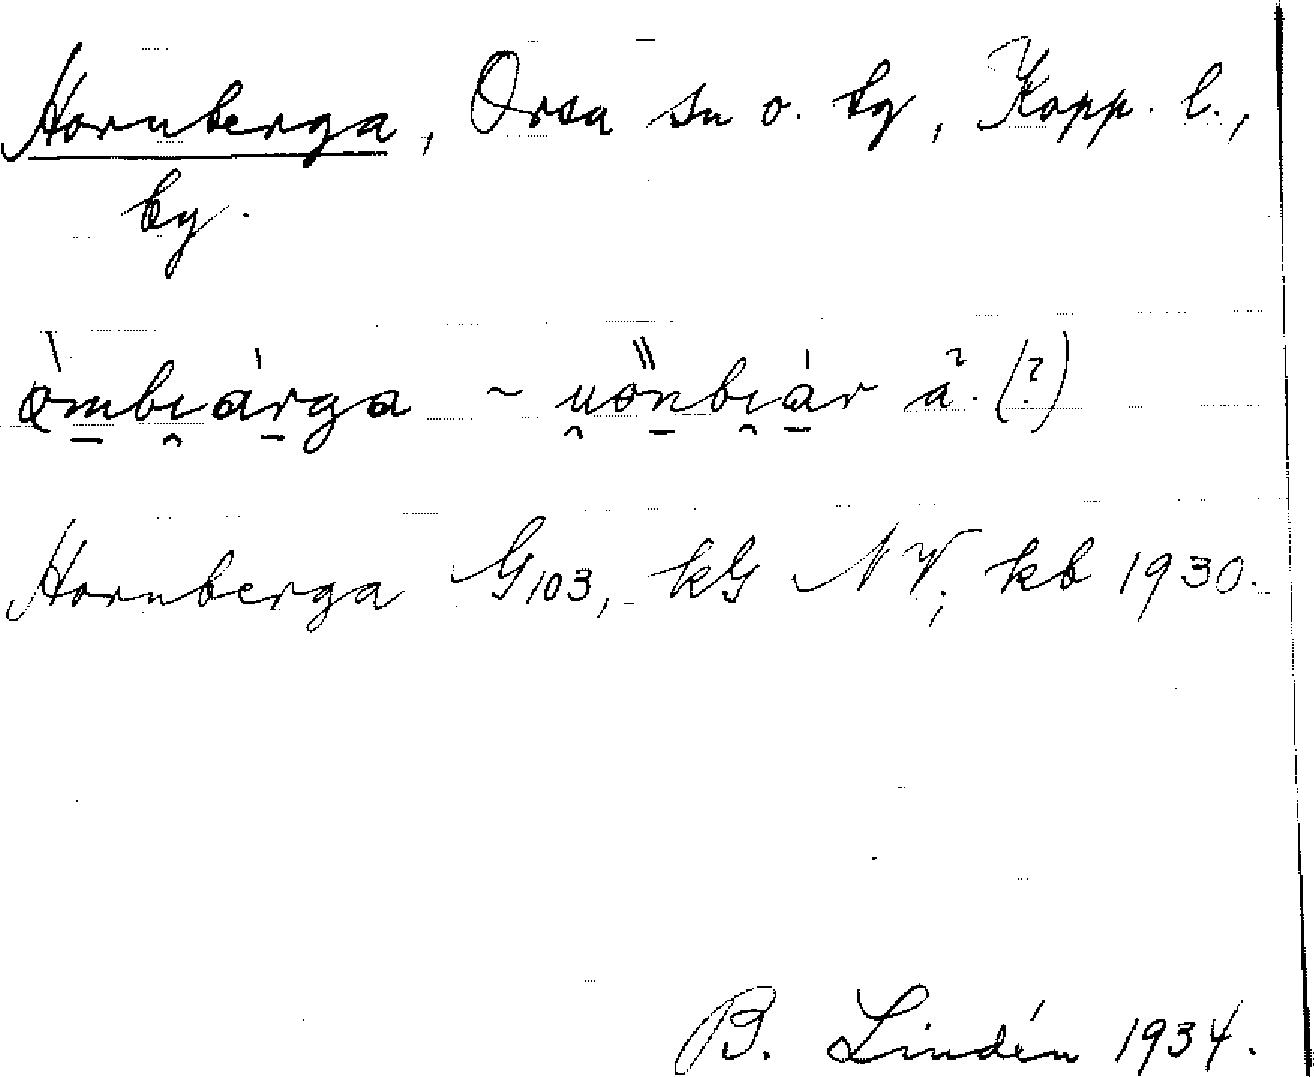 Hornberga, Orsa sn o. tg, Kopp. l.,
by.
Hornberga G103, kG NV; kb 1930.
B. Lindén 1934.